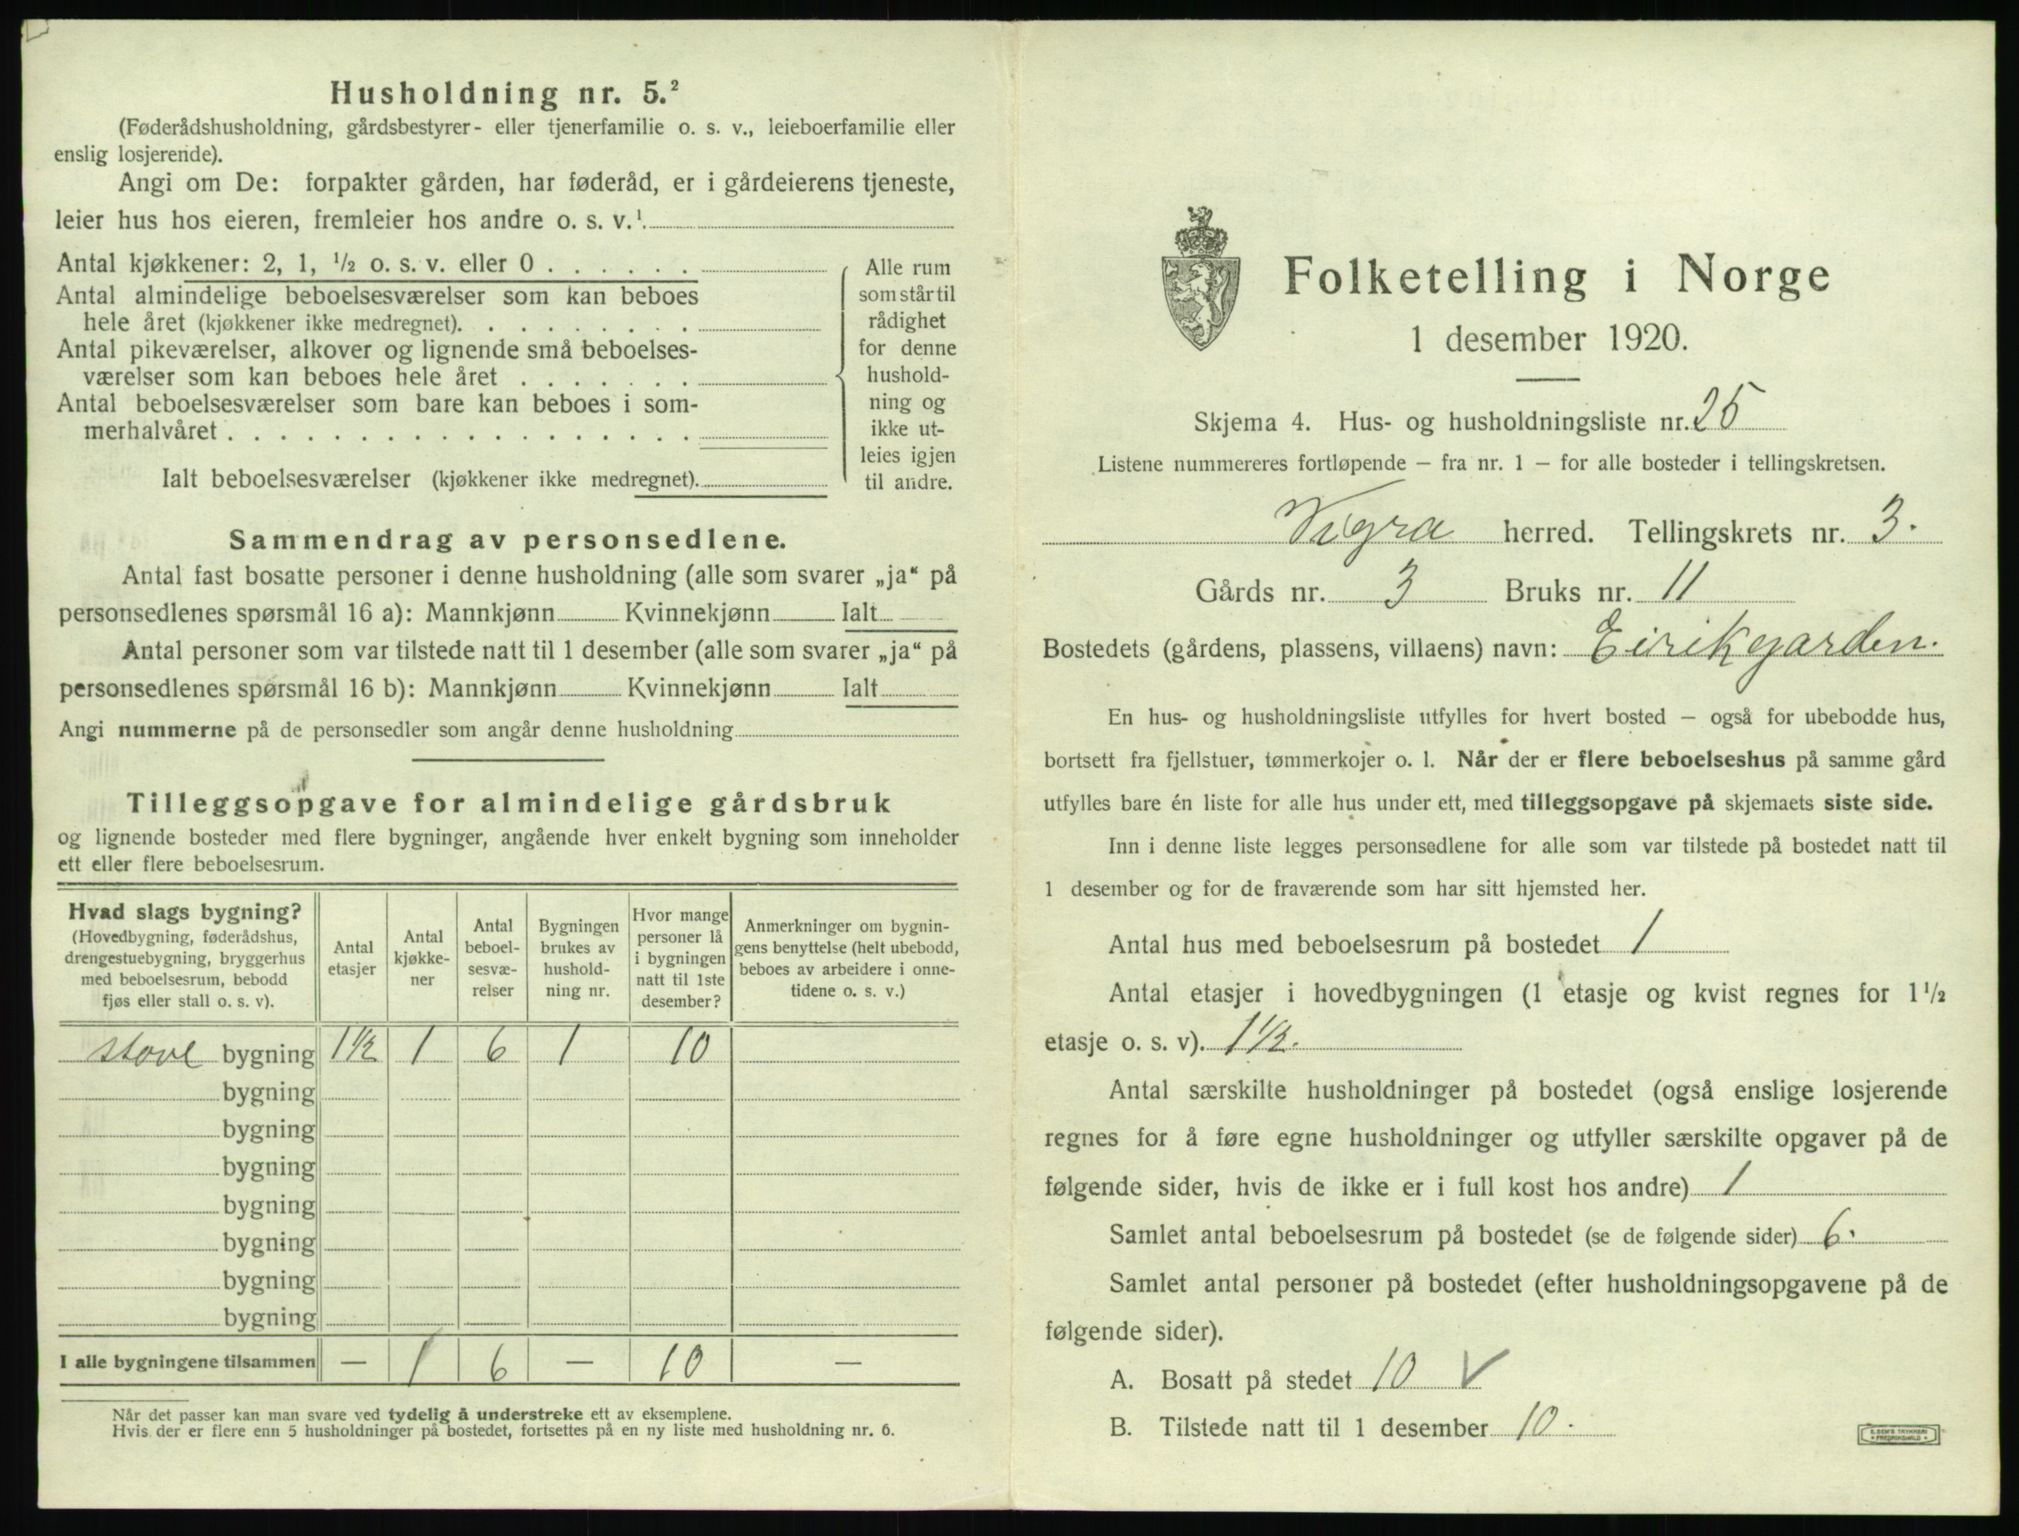 Husholdning nr. 5.²
(Føderådshusholdning, gårdsbestyrer- eller tjenerfamilie o. s. v., leieboerfamilie eller
enslig losjerende).
Angi om De: forpakter gården, har føderåd, er i gårdeierens tjeneste,
leier hus hos eieren, fremleier hos andre o. s. v.¹
Antal kjøkkener: 2, 1, ½ o. s. v. eller 0 . . . . . .
Antal almindelige beboelsesværelser som kan beboes
hele året (kjøkkener ikke medregnet). . . . . . . . .
Antal pikeværelser, alkover og lignende små beboelses-
værelser som kan beboes hele året . . . . . . .
Antal beboelsesværelser som bare kan beboes i som-
merhalvåret . . . . . . . . . . . . . . . . . .
Ialt beboelsesværelser (kjøkkener ikke medregnet).
Alle rum
som står til
rådighet
for denne
hushold-
ning og
ikke ut-
leies igjen
til andre.
Sammendrag av personsedlene.
Antal fast bosatte personer i denne husholdning (alle som svarer „ja“ på
personsedlenes spørsmål 16 a): Mannkjønn Kvinnekjønn Ialt
Antal personer som var tilstede natt til 1 desember (alle som svarer „ja“ på
personsedlenes spørsmål 16 b): Mannkjønn Kvinnekjønn Ialt
Angi nummerne på de personsedler som angår denne husholdning
Tilleggsopgave for almindelige gårdsbruk
og lignende bosteder med flere bygninger, angående hver enkelt bygning som inneholder
ett eller flere beboelsesrum.
Hvad slags bygning?
(Hovedbygning, føderådshus,
drengestuebygning, bryggerhus
med beboelsesrum, bebodd
fjøs eller stall o. s. v).
Antal
etasjer
Antal
kjøkke-
ner
Antal
beboel-
sesvæ-
relser
Bygningen
brukes av
hushold-
ning nr.
Hvor mange
personer lå
i bygningen
natt til 1ste
desember?
Anmerkninger om bygnin-
gens benyttelse (helt ubebodd,
beboes av arbeidere i onne-
tidene o. s. v.)
stove bygning 1½ 1 6 1 10
bygning
bygning
bygning
bygning
bygning
bygning
bygning
I alle bygningene tilsammen — 1 6 — 10 —
Når det passer kan man svare ved tydelig å understreke ett av eksemplene.
Hvis der er flere enn 5 husholdninger på bostedet, fortsettes på en ny liste med husholdning nr. 6.
Folketelling i Norge
1 desember 1920.
Skjema 4. Hus- og husholdningsliste nr. 25
Listene nummereres fortløpende – fra nr. 1 – for alle bosteder i tellingskretsen.
Vigra herred. Tellingskrets nr. 3.
Gårds nr. 3 Bruks nr. 11
Bostedets (gårdens, plassens, villaens) navn: Eirikgarden.
En hus- og husholdningsliste utfylles for hvert bosted – også for ubebodde hus,
bortsett fra fjellstuer, tømmerkojer o. l. Når der er flere beboelseshus på samme gård
utfylles bare én liste for alle hus under ett, med tilleggsopgave på skjemaets siste side.
Inn i denne liste legges personsedlene for alle som var tilstede på bostedet natt til
1 desember og for de fraværende som har sitt hjemsted her.
Antal hus med beboelsesrum på bostedet 1
Antal etasjer i hovedbygningen (1 etasje og kvist regnes for 1½
etasje o. s. v). 1½.
Antal særskilte husholdninger på bostedet (også enslige losjerende
regnes for å føre egne husholdninger og utfyller særskilte opgaver på de
følgende sider, hvis de ikke er i full kost hos andre) 1
Samlet antal beboelsesrum på bostedet (se de følgende sider) 6.
Samlet antal personer på bostedet (efter husholdningsopgavene på de
følgende sider).
A. Bosatt på stedet 10 V
B. Tilstede natt til 1 desember 10.